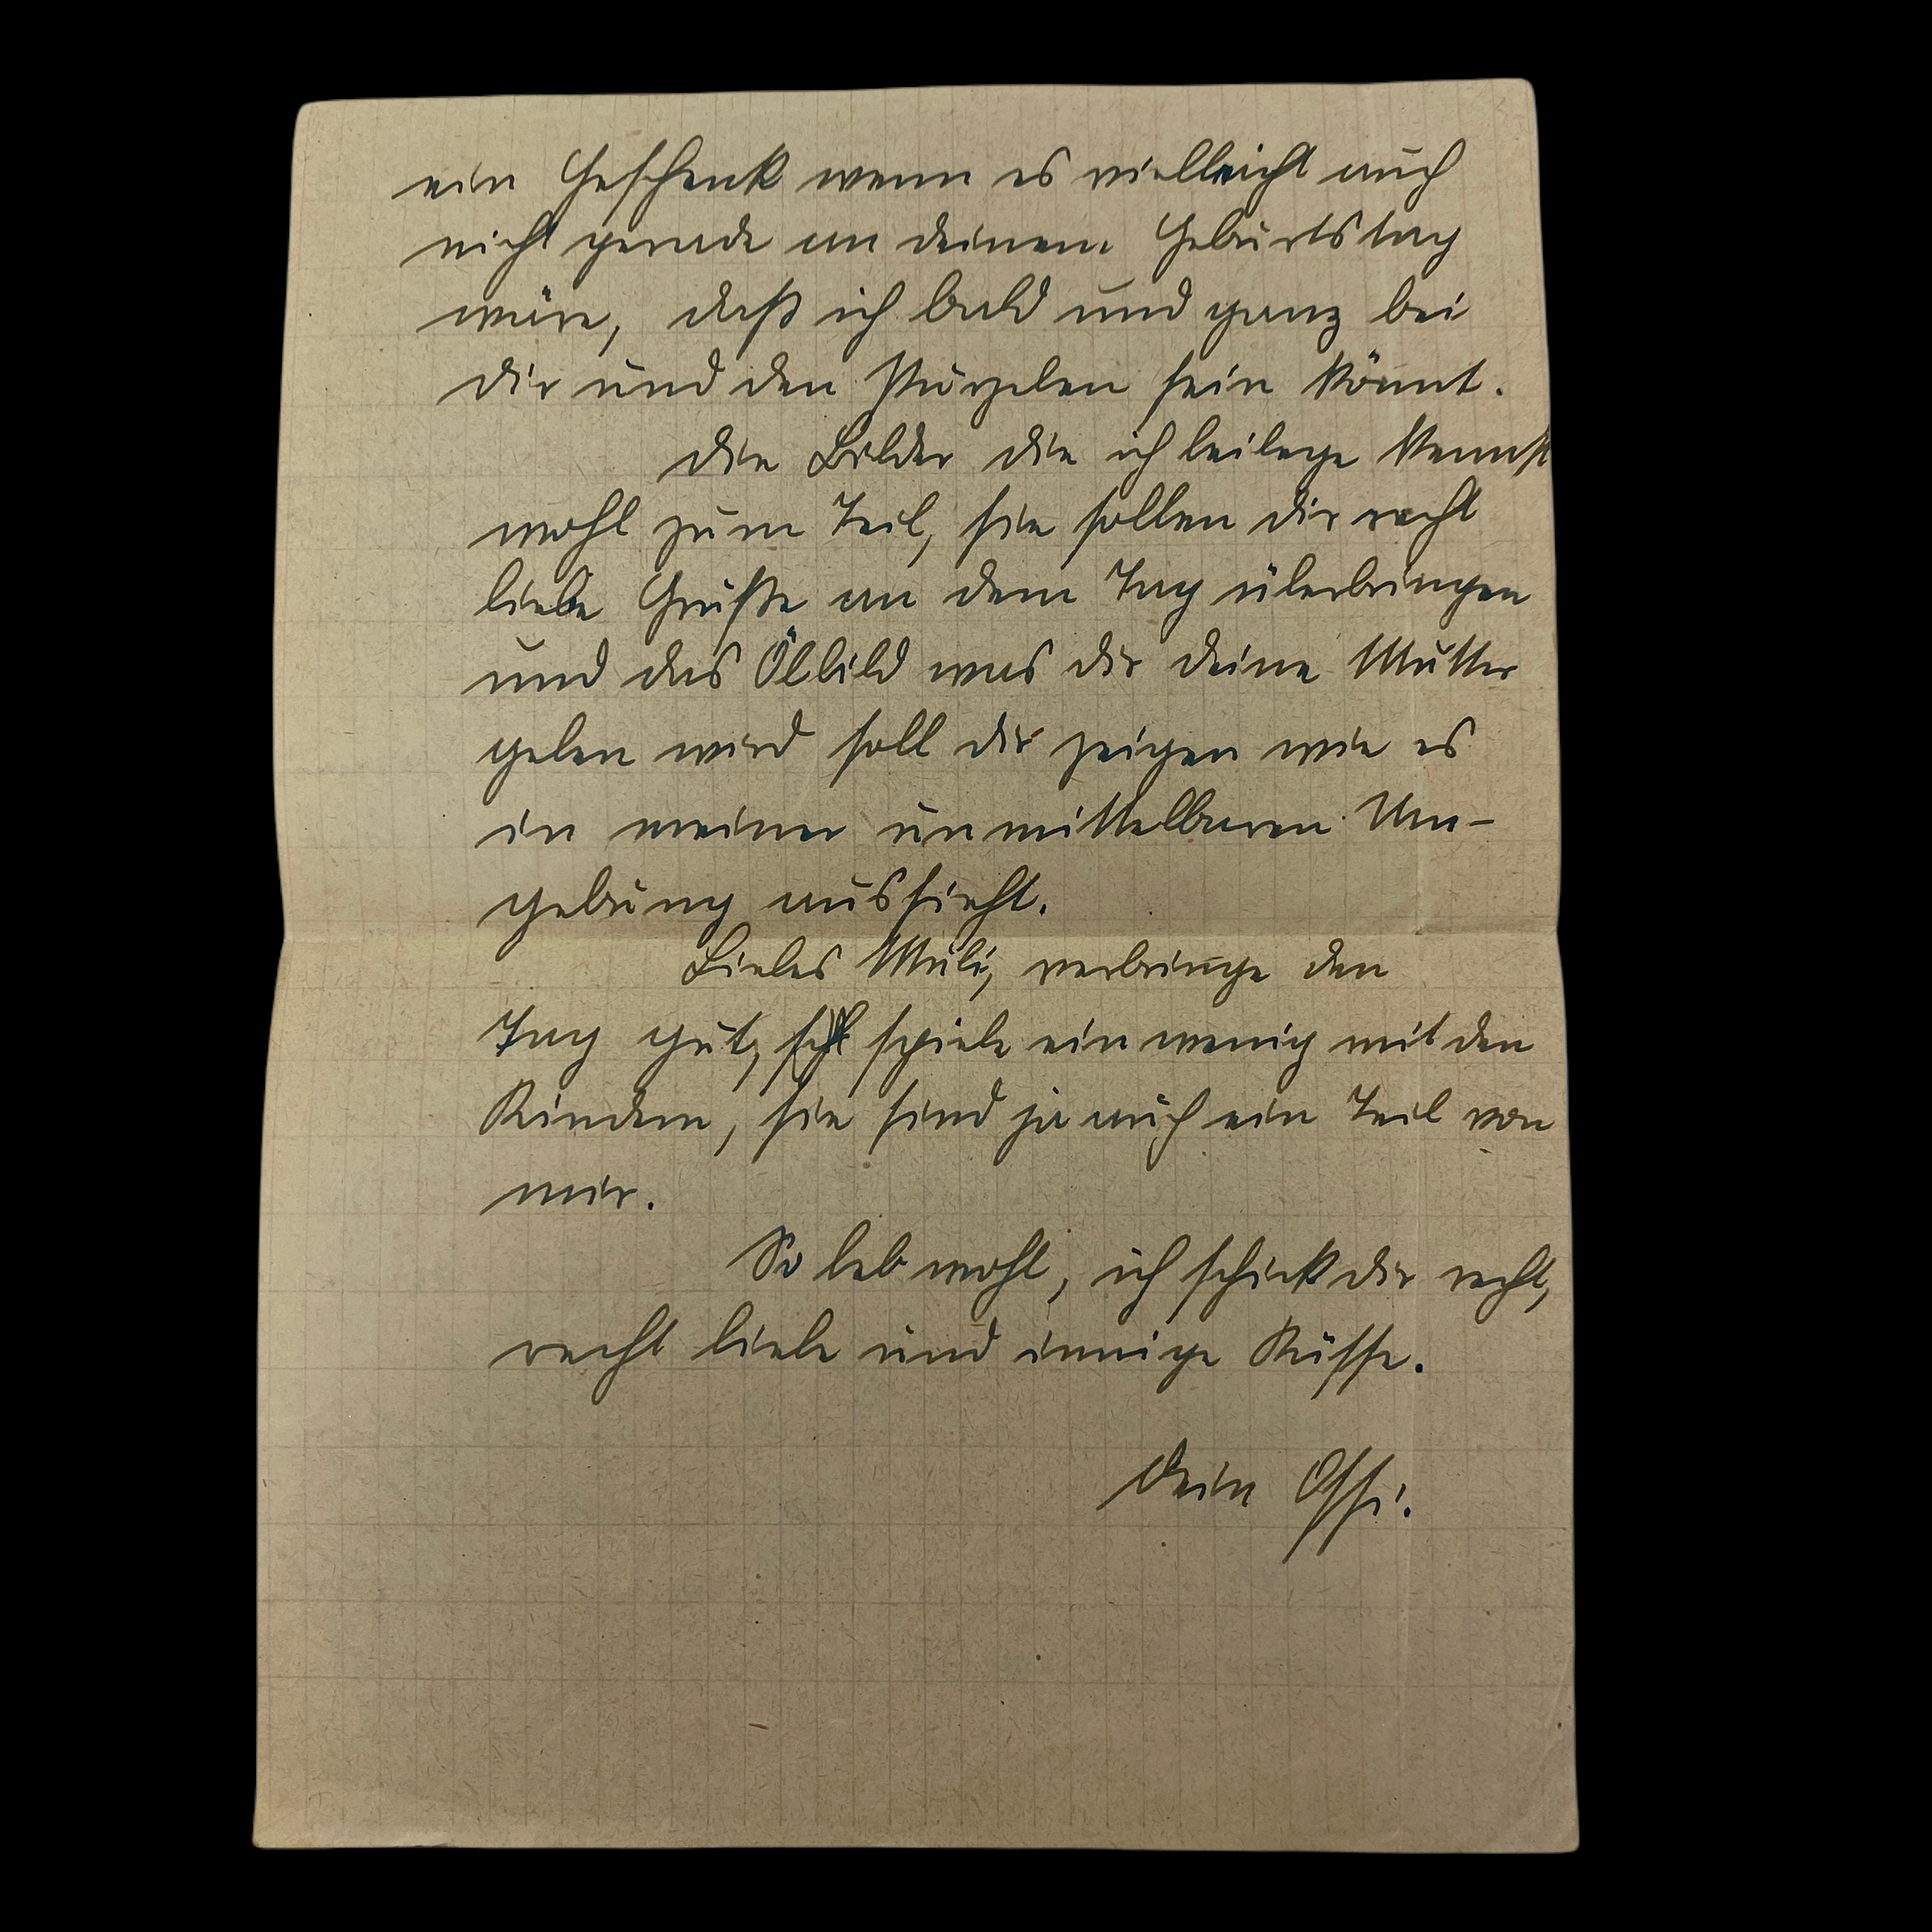 ein Geschenk wenn es vielleicht auch
nicht gerade an deinem Geburtstag
wäre, daß ich bald und ganz bei
dir und den Purzelen sein könnt.
Die Bilder die ich beilege kennst
wohl zum Teil, sie sollen dir recht
liebe Grüße an dem Tag überbringen
und das Ölbild was dir deine Mutter
geben wird soll dir zeigen wie es
in meiner unmittelbaren Um-
gebung aussieht.
Liebes Muli, verbringe den
Tag gut, spiele ein wenig mit den
Kindern, sie sind ja auch ein Teil von
mir.
So leb wohl, ich schick dir recht,
recht liebe und innige Küsse.
Dein Ossi.